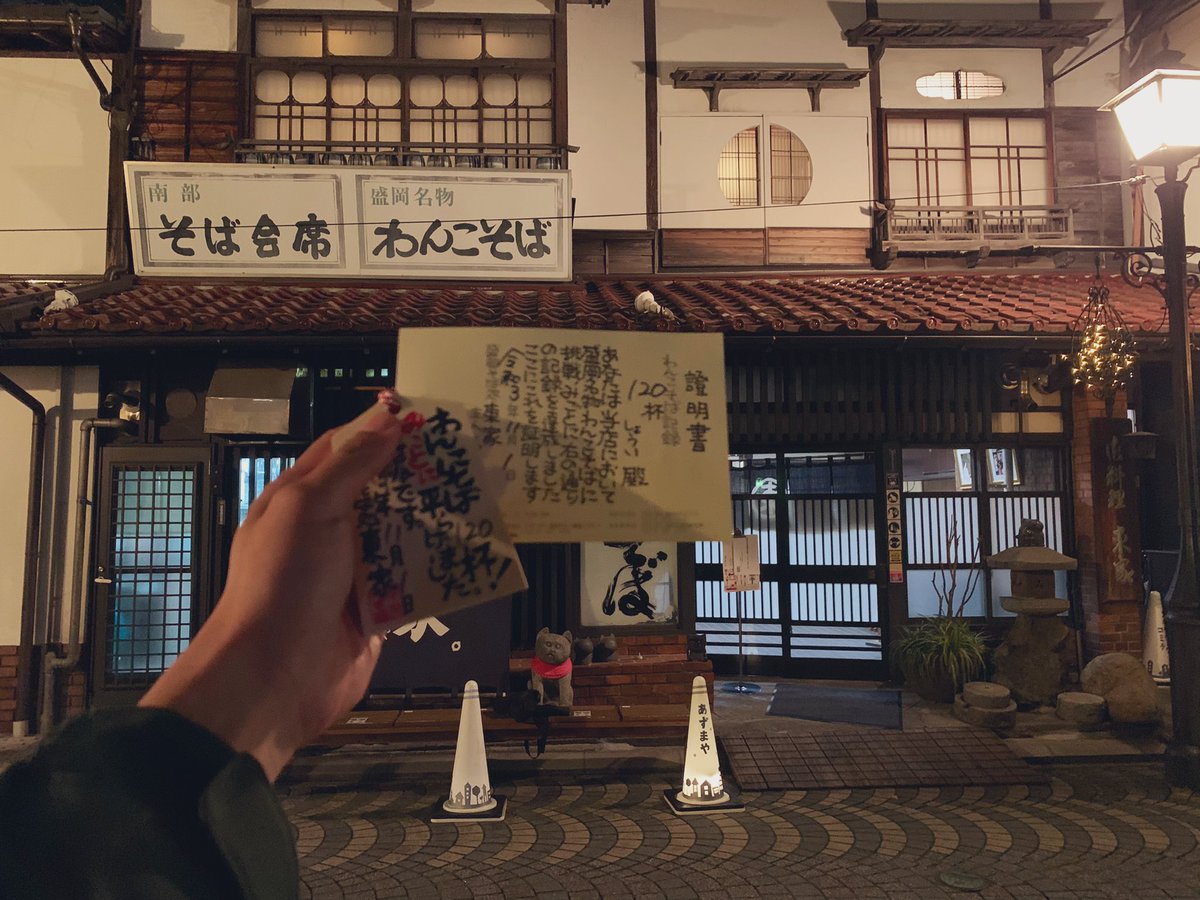 南部
そば会席
盛岡名物
わんこそば
證明書
わんこそば記録
120杯
しょうい 殿
あなたは当店において
盛岡名物わんこそばに
挑戦みごとに右の通り
の記録を達成しました
ここにこれを證明します
令和3年11月1日
東家
わんこそば120杯!
みごとに平らげました
です
11月1日
東家
そば
あずまや
東家